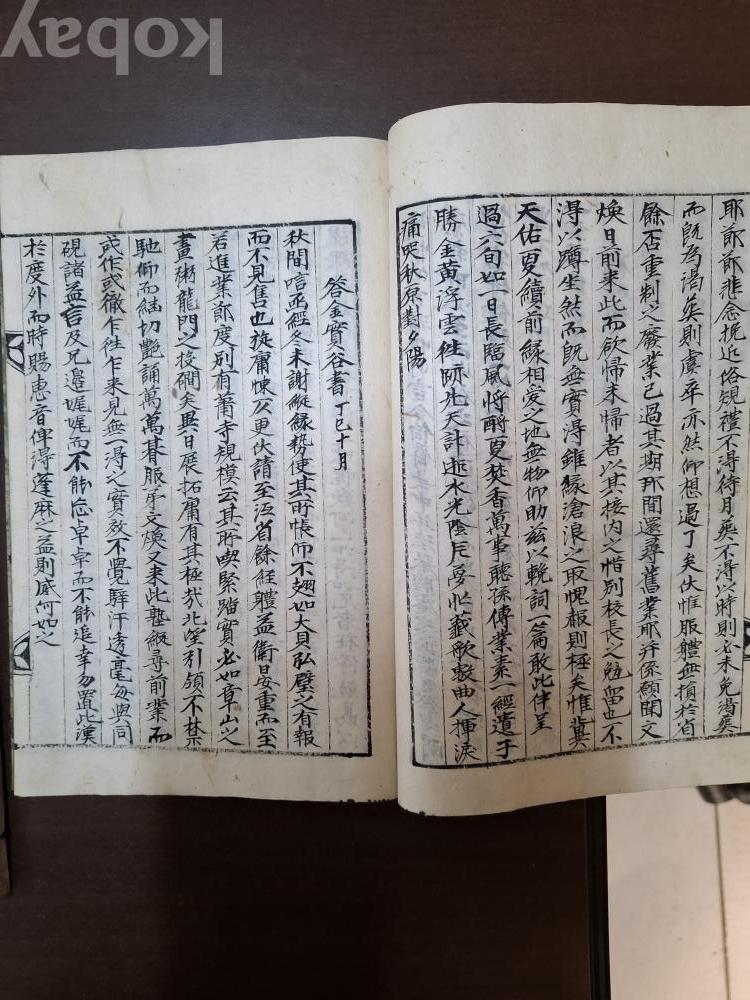 kobay
耶節節悲念挽近俗規禮不得待月葬不得以時則必未免渴葬
而旣爲渴葬則虞卒亦然仰想過了矣伏惟服體無損於省
餘否重制之廢業已過其期那間還尋舊業耶幷係願聞文
煥日前來此而欲歸未歸者以其接內之惜別校長之勉留也不
得以蹲坐然而旣無實得雖緣滄浪之取愧板則極矣惟冀
天佑夏續前緣相愛之地無物仰助玆以輓詞一篇敢此伴呈
過六旬如一日長臨風將酹更焚香萬事聽孫傳業素一經遺子
勝金黃浮雲徃跡先天計逝水光陰片夢忙薤歌數曲人揮淚
痛哭秋原對夕陽
答金實谷書 丁巳十月
秋間唁函經冬未謝縱緣勢使其所悵仰不翅如大貝弘璧之有報
而不見售也旋庸悚仄更伏請至沍省餘經體益衛晏重而至
若進業節度別有莆寺規模云其所喫緊踏實必如章山之
畫粥龍門之投磵矣異日展拓庸有其極哉北望引領不禁
馳仰而結切艶誦萬萬碁服弟文煥又來此塾級尋前業而
或作或撤乍徃乍來見無一得之實效不覺騂汗透毫每與同
硯諸益言及兄邊娓娓而不能忘卓卓而不能追幸勿置此漢
於度外而時賜惠音俾得蓬麻之益則感何如之